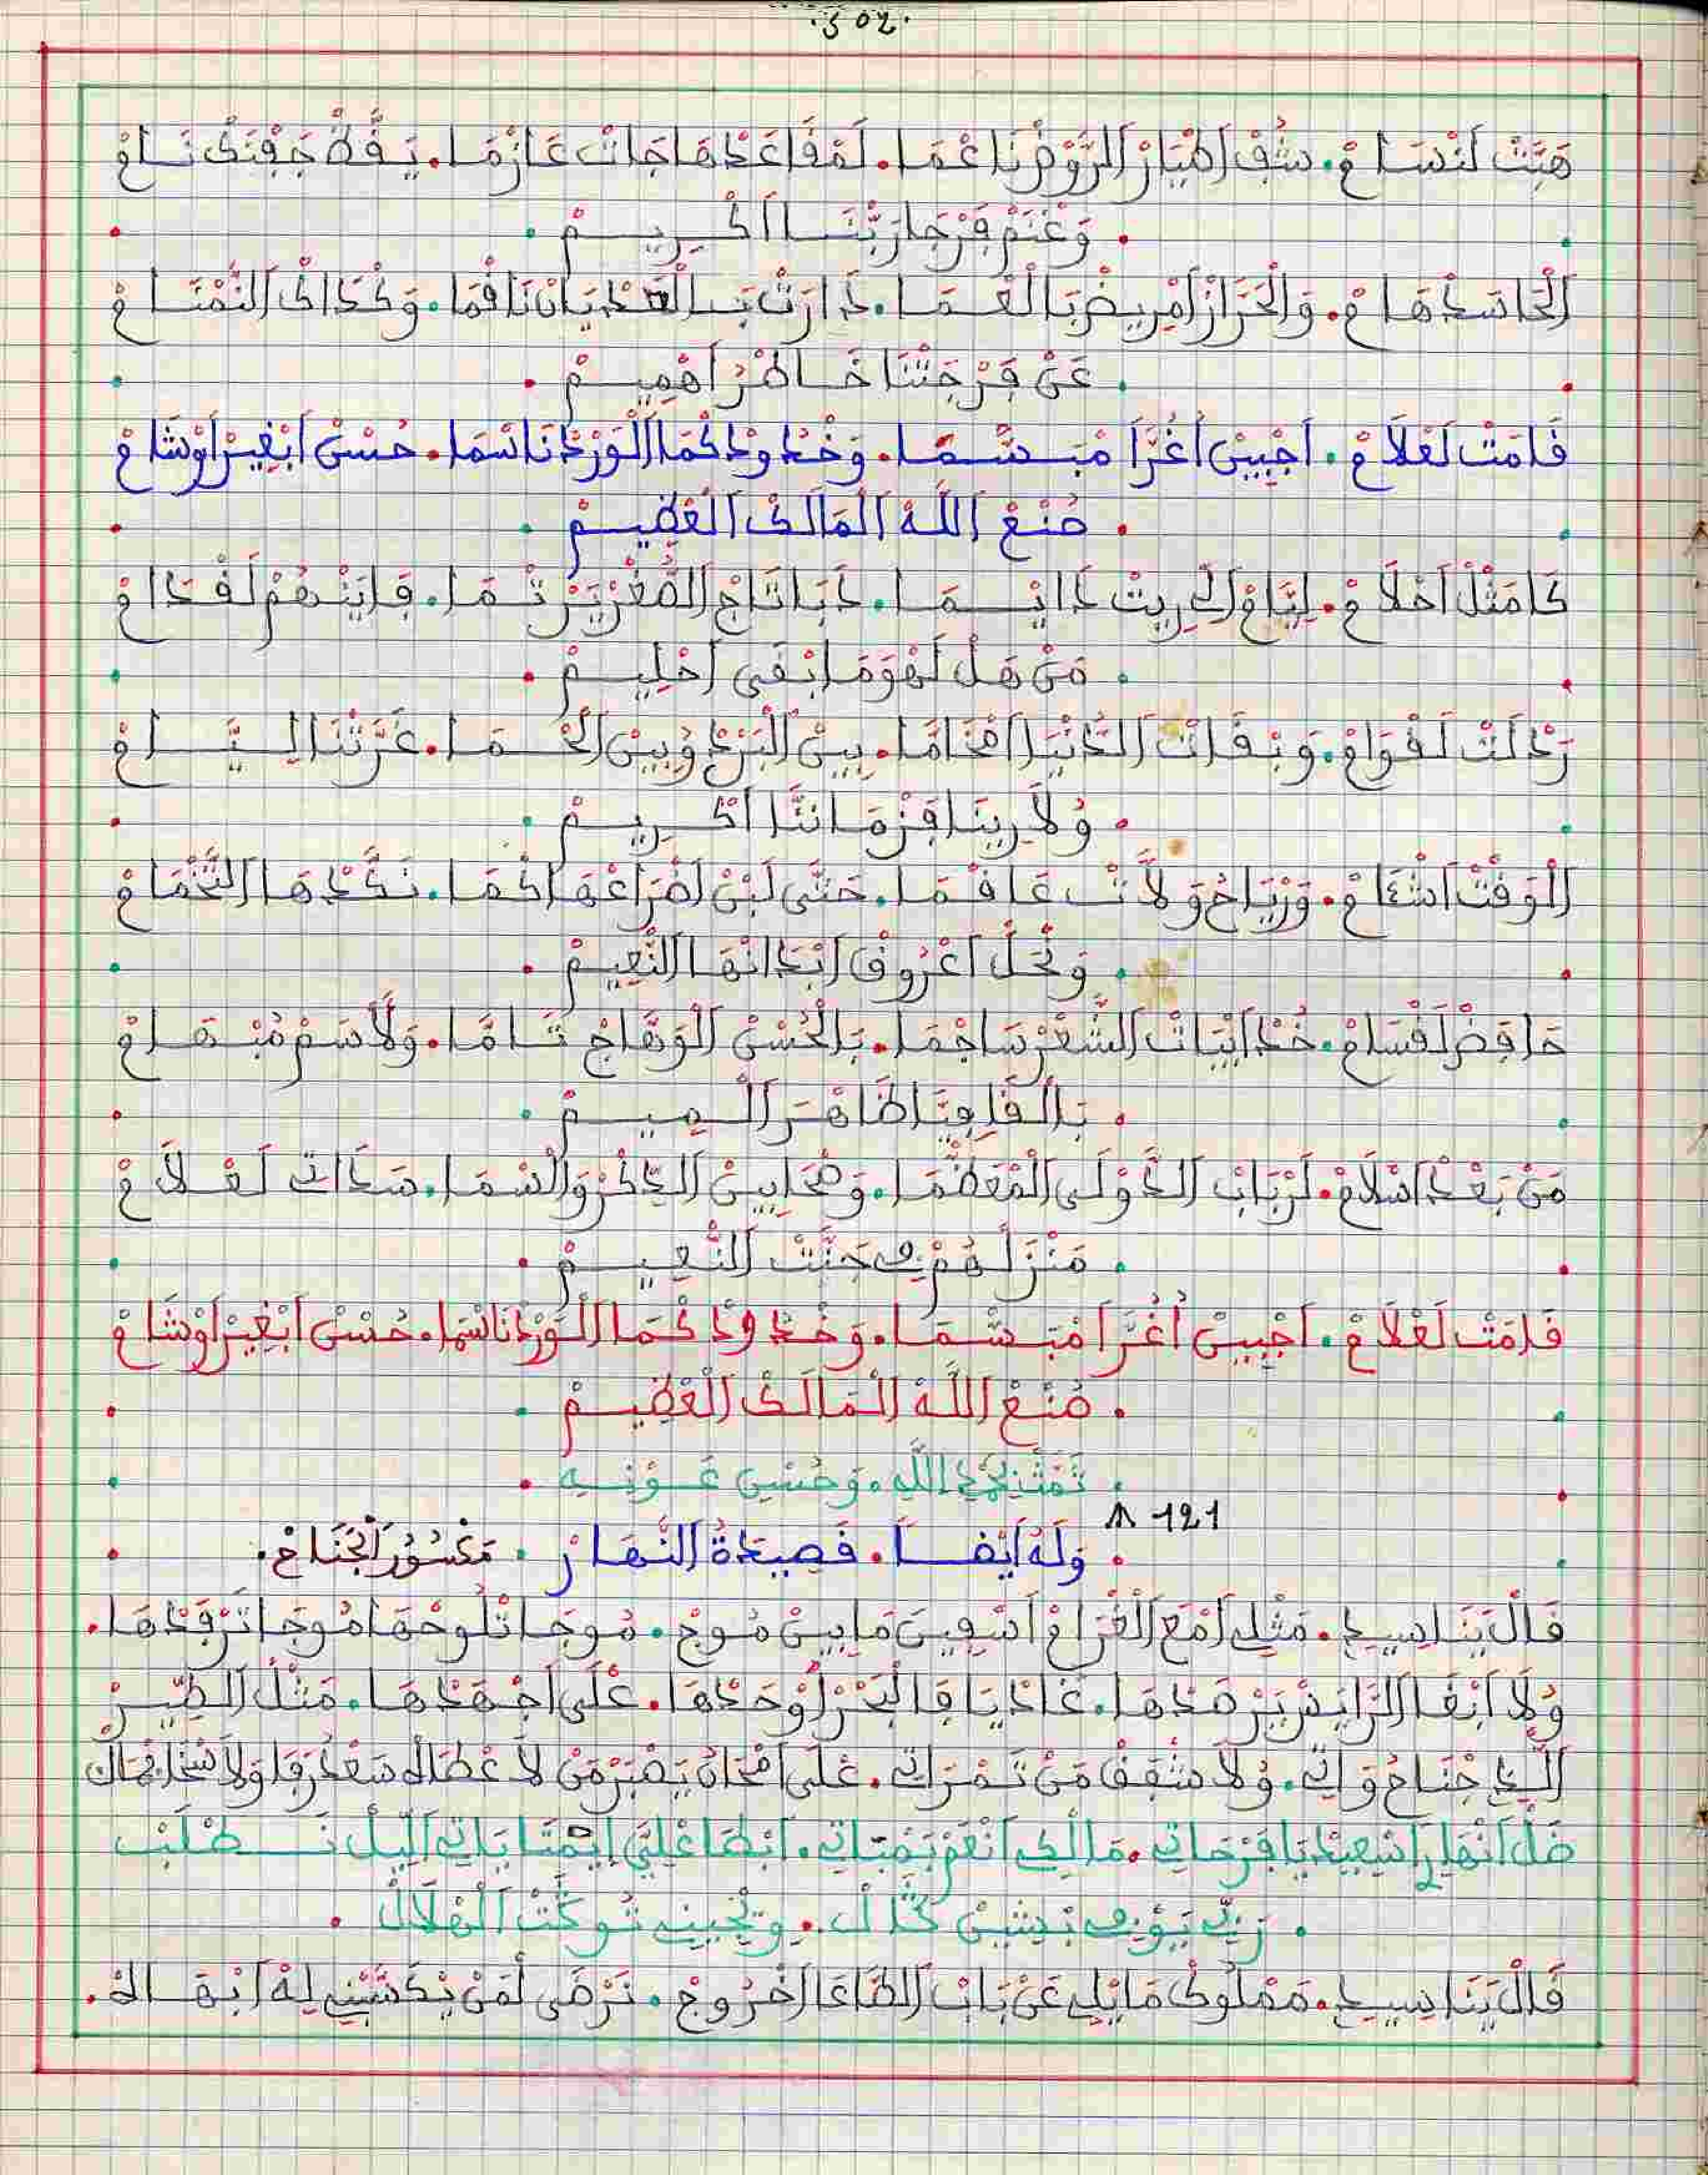 .302.
هَبَّتْ لَنْسَامْ. شُفْ اَطْيَارْ اَلرَّوْضْ نَاغْمَا. لَمْقَاعَدْهَا جَاتْ عَازْمَا. يَقَّظْ جَفْنَكْ نَامْ
. وَغْنَمْ فَرْجَا رَبْنَا اَكْرِيمْ .
اَلْحَاسَدْ هَامْ. وَالْحَرَّازْ اَمْرِيضْ بَالْعْمَا. دَارَتْ بَالْعَدْيَانْ نَاقْمَا. وَكْدَاكْ اَلنَّمَّامْ
. عَنْ فَرْجَتْنَا خَاطْرُ اَهْمِيمْ .
قَامَتْ لَعْلَامْ. اَجْبِينْ اُغُرَّا مْبَسّْمَا. وَخْدُودْ كْمَا اَلْوَرْدْ نَاسْمَا. حُسْنْ اَبْغِيرْ اَوْشَامْ
. صُنْعْ اَللَّهْ اَلْمَالَكْ اَلْعْظِيمْ .
كَامَثْلْ اَحْلَامْ. لِيَّامْ اَلْحَرِيتْ دَايْمَا. دَبَا تَاجْ اَلصُّغْرْ يَرْتْمَا. فَايَنْهُمْ لَقْدَامْ
. مَنْ هَلْ لَهْوَ مَا اِبْقَى اَحْلِيمْ .
رَدْلَتْ لَقْوَامْ. وَبْقَاتْ اَلدَّنْيَا اَمْخَامَّا. بِينْ اَلْبَرْدْ وُبِينْ اَلْحْمَا. غَرَّتْنَا لِيَّامْ
. وُلَا رِينَا فَزْمَانَّا اَكْرِيمْ .
اَلْوَقْتْ اَشْآمْ. وَرْيَاحُ وَلَّاتْ عَاقْمَا. حَتَّى لَبْنْ اَضْرَاعْهَا كْمَا. نَكَّدْهَا اَلتَّخْمَامْ
. وَنْحَلّْ اَعْرُوقْ اَبْدَانْهَا اَلنّْعِيمْ .
حَافَضْ لَقْسَامْ. خُدْ اَبْيَاتْ اَلشَّعْرْ سَاجْمَا. بَالْحُسْنْ اَلْوَهَّاجْ تَامَّا. وَلَاسَمْ مُبْهَامْ
. بَالْقَافِيَّا ظَاهَرْ اَلْمِيمْ .
مَنْ بَعْدْ اَسْلَامْ. لَرْبَابْ اَلدَّوْلَى اَلْمْعَظّْمَا. وَصْحَابِينْ اَلدِّكْرْ وَالْسْمَا. سَدَاتِي لَعْلَامْ
. مَنْزَلْهُمْ فِي جَنَّتْ اَلنّْعِيمْ .
قَامَتْ لَعْلَامْ. اَجْبِينْ اُغُرَّا مْبَسّْمَا. وَخْدُودْ كْمَا اَلْوَرْدْ نَاسْمَا. حُسْنْ اَبْغِيرْ اَوْشَامْ
. صُنْعْ اَللَّهْ اَلْمَالَكْ اَلْعْظِيمْ .
. تَمَّتْ بِحَمْدِ اللَّهِ. وَحُسْنِ عَوْنِهِ .
121
. وَلَهُ اَيْضاً. قَصِيدَةُ اَلنَّهَارْ . مَكْسُورْ اَلْجْنَاحْ.
قَالْ يَنَا سِيدِي. مَثْلِي اَمْعَ اَلْغْرَامْ اَسْفِينَ مَا بِينْ مُوجْ. مُوجَا تْلُوحْهَا مُوجَا تَرْفَدْهَا.
وُلَا اَبْقَا اَلرَّايَسْ يَرْصَدْهَا. غَادْيَا فَالْبْحَرْ لْوُحَدْهَا. عْلَى اَجْهَدْهَا. مَثْلْ اَلطِّيرْ
اَلِّي جْنَاحُ وَاتِي. وُلَا شْفَفْ مَنْ تَمْرَاتِي. عْلَى اَمْحَانُ يَصْبَرْ مَنْ لَا عْطَالُ سَعْدُ رَفَا وَلَاسْخَا بْمَالْ
ضَلّْ اَنْهَارْ اَسْعِيدْ يَا فَرْحَاتِي. مَالْكِي اَنْعَمْ بَمْبَاتِي. اَبْطَا عْلِيَّ اِيْمْتَا يَاتِي اَللِّيلْ نَطْلَبْ
. رَبِّي يَوْفِي بْشِينْ كْمَالْ. وِيْجِينِي شُوكْتْ اَلْهْلَالْ .
قَالْ يَنَا سِيدِي. مَمْلُوكْ مَايْلِي عَنْ بَابْ اَلطَّاعَا اَخْرُوجْ. نَرْضَى لَمَنْ يْكَسَّبْنِي لِهْ اَبْهَالُ.